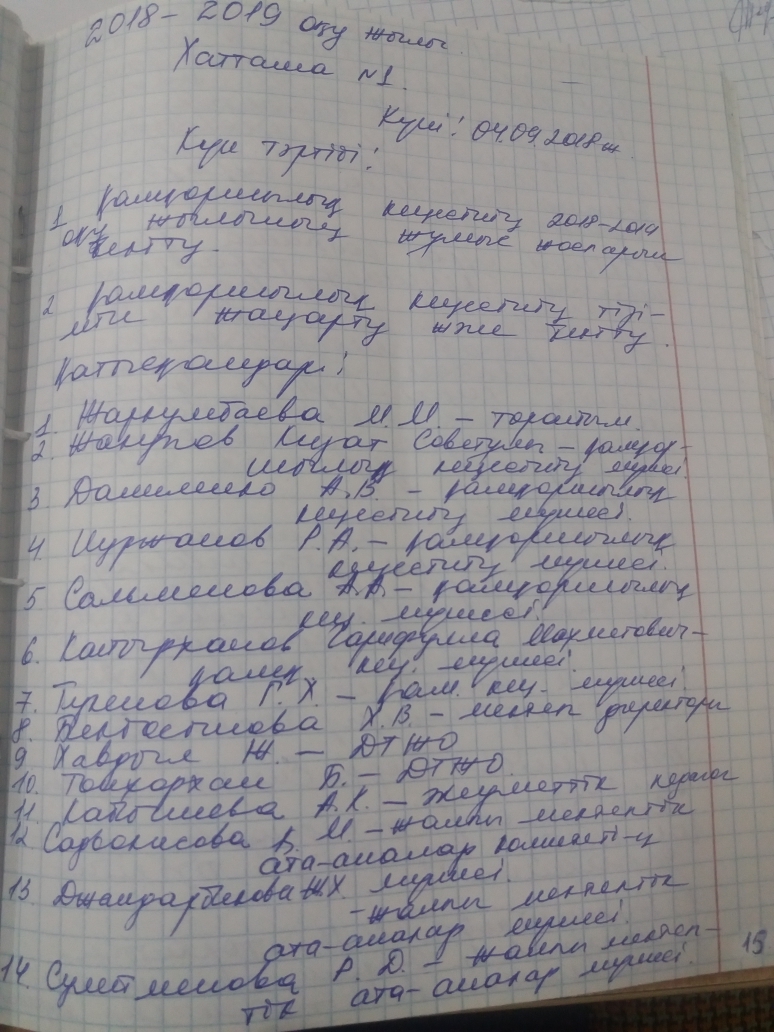 2018-2019 оқу жылы.
Хаттама №1.
Күні: 04.09.2018ж.
Күн тәртібі:
1. Қамқоршылық кеңестің 2018-2019
оқу жылының жұмыс жоспарын
бекіту.
2 Қамқоршылық кеңестің тізі-
мін жаңарту және бекіту.
Қатысқандар:
1. М.М. – төрайым.
2. Жакупов Қизат Советұлы – қамқор-
шылық кеңестің мүшесі.
3 Даниленко А.В. – қамқоршылық
кеңестің мүшесі.
4. Нуржанов Р.А. – қамқоршылық
кеңестің мүшесі.
5 Сальменова А.А. – қамқоршылық
кең. мүшесі.
6. Капырханов Гарифулла
қамқ кең. мүшесі.
7. Г.Х. – қам. кең. мүшесі.
8. Х.В. – мектеп директоры
9 Ж. – ДТЖО
10. Б. – ДТЖО.
11. А.К. – Ж еңұрметтік педагог
12 Садвокасова М. – жалпы мектептік
ата-аналар комитеті-ң
мүшесі.
13. Джандарбекова Ж.Х.
– жалпы мектептік
ата-аналар мүшесі.
14. Сулейменова Р.Д. – жалпы мектеп-
тік ата-аналар мүшесі.